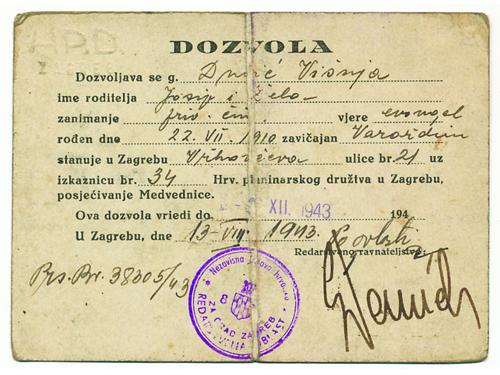 DOZVOLA
Dozvoljava se g. Višnja
ime roditelja Josip i Jela
zanimanje priv. čin. vjere evangel
rođen dne 22. VII. 1910 zavičajan Varaždin
stanuje u Zagrebu Vrhovčeva ulice br. 21 uz
izkaznicu br. 34 Hrv. planinarskog družtva u Zagrebu,
posjećivanje Medvednice.
Ova dozvola vriedi do XII. 1943 194
U Zagrebu, dne 13-VIII 1943.
Redarstveno ravnateljstvo:
Prs. Br. 38005/43
Nezavisna Država Hrvatska
8
REDARSTVENA OBLAST
ZA GRAD ZAGREB